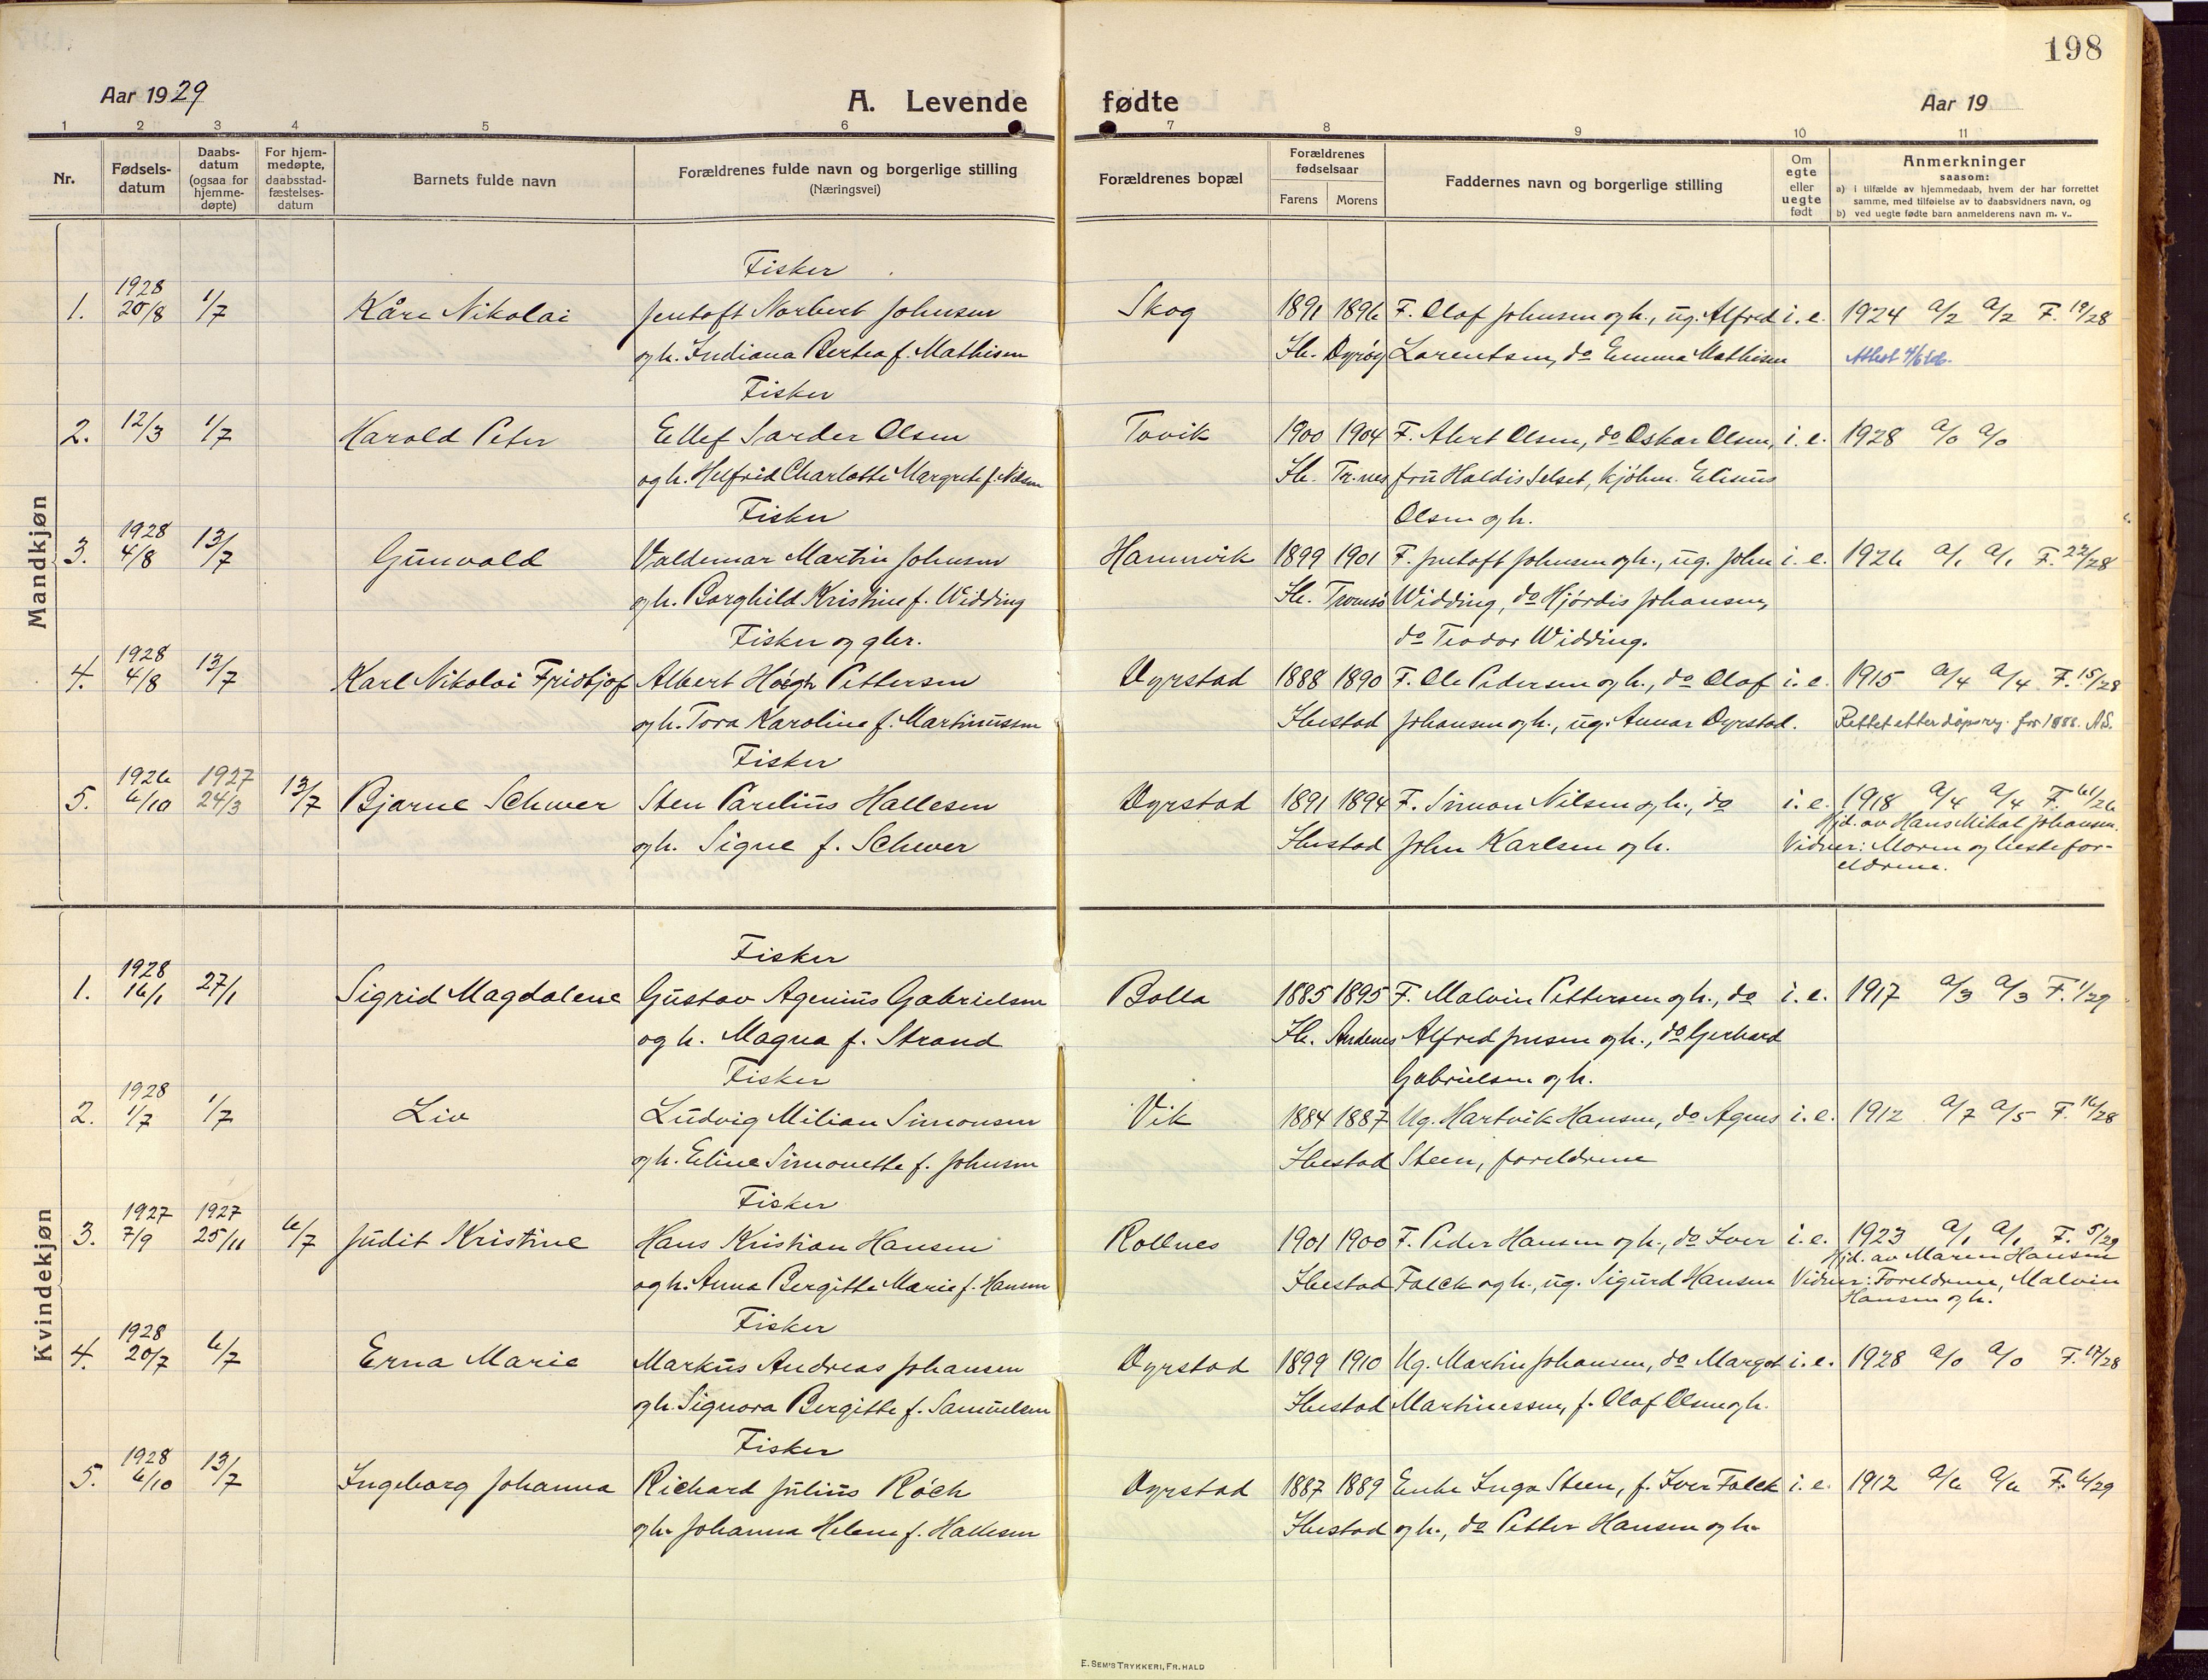 198
Aar 1929
A. Levende fødte
Aar 19
1 2 3 4 5 6 7 8 9 10 11
Nr.
Fødsels-
datum
Daabs-
datum
(ogsaa for
hjemme-
døpte)
For hjem-
medøpte,
daabsstad-
fæstelses-
datum
Barnets fulde navn
Forældrenes fulde navn og borgerlige stilling
(Næringsvei)
Forældrenes bopæl
Forældrenes
fødselsaar
Farens Morens
Faddernes navn og borgerlige stilling
Om
egte
eller
uegte
født
Anmerkninger
saasom:
a) i tilfælde av hjemmedaab, hvem der har forrettet
samme, med tilføielse av to daabsvidners navn, og
b) ved uegte fødte barn anmelderens navn m. v..
Mandkjøn
1928 Fisker
1. 20/8 1/7 Kåre Nikolai Jentoft Norbert Johnsen Skog 1891 1896 F. Olaf Johnsen og h., ug. Alfred i. e. 1924 a/2 a/2 F. 19/28
og h. Indiana Bertea f. Mathisen Ib. Dyrøy Lorentsen, do Emma Mathisen
Fisker
2. 12/3 1/7 Harald Peter Ellef Sarder Olsen Tovik 1900 1904 F. Alert Olsen, do Oskar Olsen, i. e. 1928 a/0 a/0
og h. Helfrid Charlotte Margrete f. Nilsen Ib. Tr.nes fru Haldis Selset, kjøbm. Eliseus
Fisker Olsen og h.
1928
3. 4/8 13/7 Gunvald Valdemar Martin Johnsen Hamnvik 1899 1901 F. Jentoft Johnsen og h., ug. John i. e. 1926 a/1 a/1 F. 22/28
og h. Borghild Kristine f. Widding Ib. Tromsø Widding, do Hjørdis Johansen,
Fisker og gbr. do Teodor Widding.
1928
4. 4/8 13/7 Karl Nikolai Fridtjof Albert Høegh Pettersen Dyrstad 1888 1890 F. Ole Pedersen og h., do Olaf i. e. 1915 a/4 a/4 F. 15/28
og h. Tora Karoline f. Martinussen Ibestad Johansen og h., ug. Annar Dyrstad. Rettet etter dåpsreg. for 1888. AS.
Fisker
1926 1927
5. 6/10 24/3 13/7 Bjarne Schwer Sten Parelius Hallesen Dyrstad 1891 1894 F. Simon Nilsen og h., do i. e. 1918 a/4 a/4 F. 61/26
Hjd. av Hans Mikal Johansen.
og h. Signe f. Schwer Ibestad John Karlsen og h. Vidner: Moren og bestefor-
eldrene.
Kvindekjøn
1928 Fisker
1. 16/1 27/1 Sigrid Magdalene Gustav Agenius Gabrielsen Bolla 1885 1895 F. Malvin Pettersen og h., do i. e. 1917 a/3 a/3 F. 1/29
og h. Magna f. Strand Ib. Andenes Alfred Jensen og h., do Gerhard
Fisker Gabrielsen og h.
1928
2. 1/7 1/7 Liv Ludvig Milian Simonsen Vik 1884 1887 Ug. Hartvik Hansen, do Agnes i. e. 1912 a/7 a/5 F. 16/28
og h. Eline Simonette f. Johnsen Ibestad Steen, foreldrene
Fisker
1927 1927
3. 7/9 25/11 6/7 Judit Kristine Hans Kristian Hansen Rollnes 1901 1900 F. Peder Hansen og h., do Iver i. e. 1923 a/1 a/1 F. 5/29
Hjd. av Maren Hansen
og h. Anna Bergitte Marie f. Hansen Ibestad Falck og h., ug. Sigurd Hansen Vidner: Foreldrene, Malvin
Hansen og h.
1928 Fisker
4. 20/7 6/7 Erna Marie Markus Andreas Johansen Dyrstad 1899 1910 Ug. Martin Johansen, do Margot i. e. 1928 a/0 a/0 F. 17/28
og h. Signora Bergitte f. Samuelsen Ibestad Martinessen, f. Olaf Olsen og h.
1928 Fisker
5. 6/10 13/7 Ingeborg Johanna Richard Julius Röck Dyrstad 1887 1889 Enke Inga Steen, f. Iver Falck i. e. 1912 a/6 a/6 F. 6/29
og h. Johanna Helene f. Hallesen Ibestad og h., do Petter Hansen og h.
E. SEM'S TRYKKERI, FR.HALD